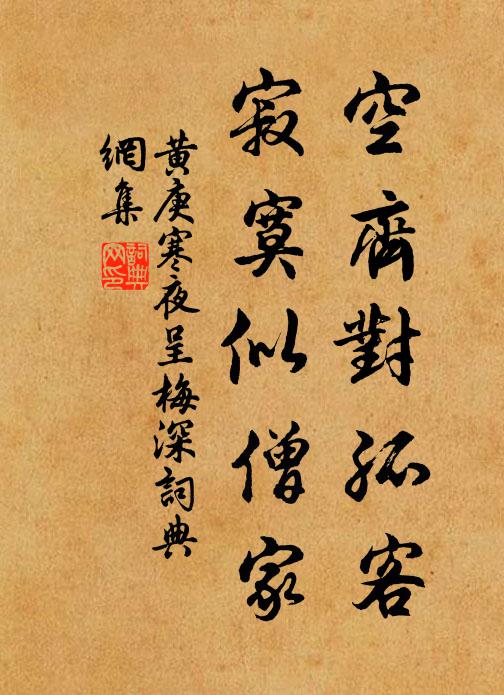 空齊對孤客
寂寞似僧家
黃庚寒夜呈梅深詞典
網集
詞典
网印